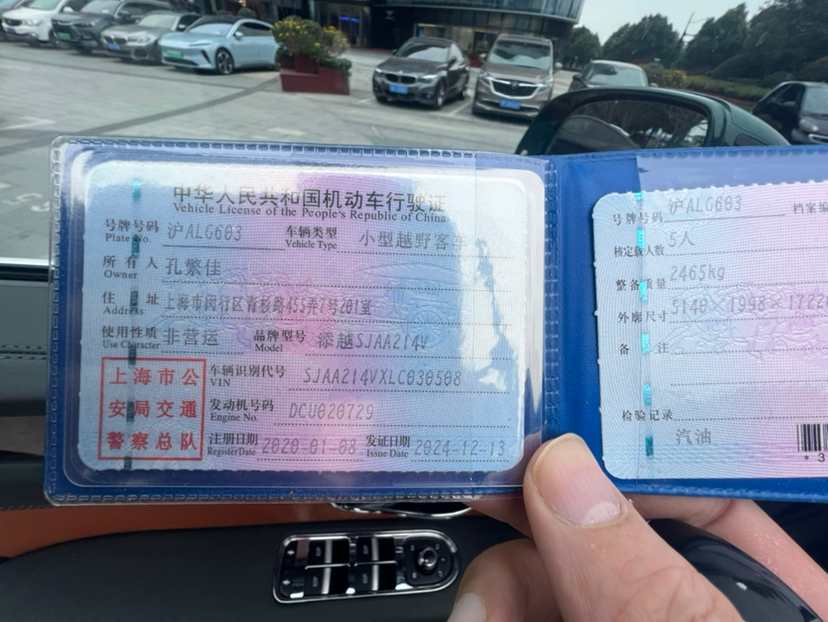 中华人民共和国机动车行驶证
Vehicle License of the People's Republic of China
号牌号码 沪ALG603 车辆类型 小型越野客车
Plate No. Vehicle Type
所有人 孔繁佳
Owner
住址 上海市闵行区青杉路455弄7号201室
Address
使用性质 非营运 品牌型号 添越SJAA214V
Use Character Model
上海市公
安局交通
警察总队
车辆识别代号 SJAA214VXLC030508
VIN
发动机号码 DCU020729
Engine No.
注册日期 2020-01-08 发证日期 2024-12-13
Register Date Issue Date
号牌号码 沪ALG603 档案编
核定载人数 5人
整备质量 2465kg
外廓尺寸 5140×1998×1722
备注
检验记录
汽油
*3